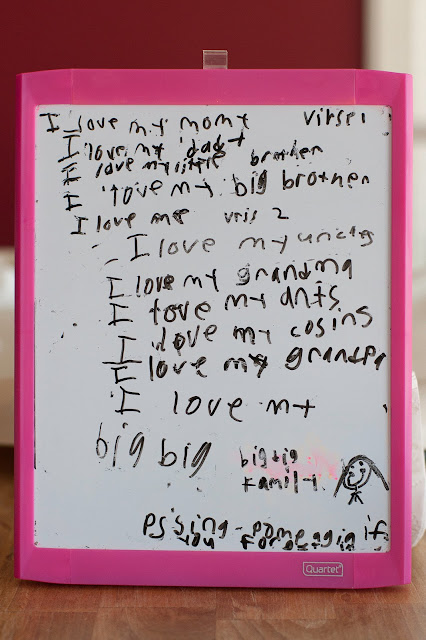 I love my momy virse 1
I love my dady
I love my little brother
I love my big brother
I love me vris 2
I love my uncles
I love my grandma
I love my ants
I love my cosins
I love my grandpa
I love my
big big
big big
family
ps sing
if
you
Quartet